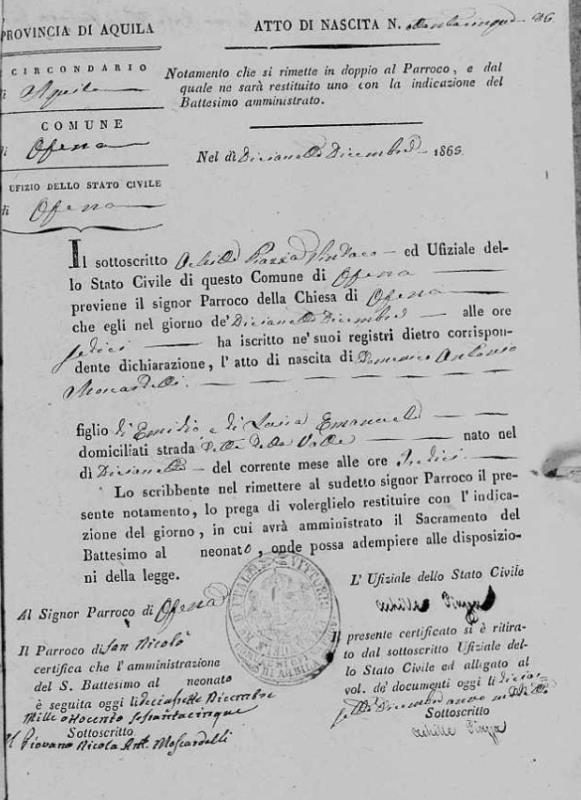 PROVINCIA DI AQUILA
CIRCONDARIO
di Aquila
COMUNE
di Ofena
UFIZIO DELLO STATO CIVILE
di Ofena
ATTO DI NASCITA N. ottantacinque 85
Notamento che si rimette in doppio al Parroco, e dal
quale ne sarà restituito uno con la indicazione del
Battesimo amministrato.
Nel dì Diciasette Dicembre 1865
Il sottoscritto Achille Piazza Sindaco ed Ufiziale del-
lo Stato Civile di questo Comune di Ofena
previene il signor Parroco della Chiesa di Ofena
che egli nel giorno de' Diciasette Dicembre alle ore
sedici ha iscritto ne' suoi registri dietro corrispon-
dente dichiarazione, l'atto di nascita di Domenico Antonio
Moscardelli
figlio di Emidio e di Luisa Emanuele
domiciliati strada detta della Valle nato nel
dì Diciasette del corrente mese alle ore
Lo scribbente nel rimettere al sudetto signor Parroco il pre-
sente notamento, lo prega di volerglielo restituire con l'indica-
zione del giorno, in cui avrà amministrato il Sacramento del
Battesimo al neonato, onde possa adempiere alle disposizio-
ni della legge.
Al Signor Parroco di Ofena
L'Ufiziale dello Stato Civile
Achille Piazza
Il Parroco di San Nicolò
certifica che l'amministrazione
del S. Battesimo al neonato
è seguita oggi li diciasette Dicembre
mille ottocento sessantacinque
Sottoscritto
Il Piovano Nicola Ant. Moscardelli
Il presente certificato si è ritira-
to dal sottoscritto Ufiziale del-
lo Stato Civile ed allegato al
vol. de' documenti oggi li dicia-
sette Dicembre
Sottoscritto
Achille Piazza